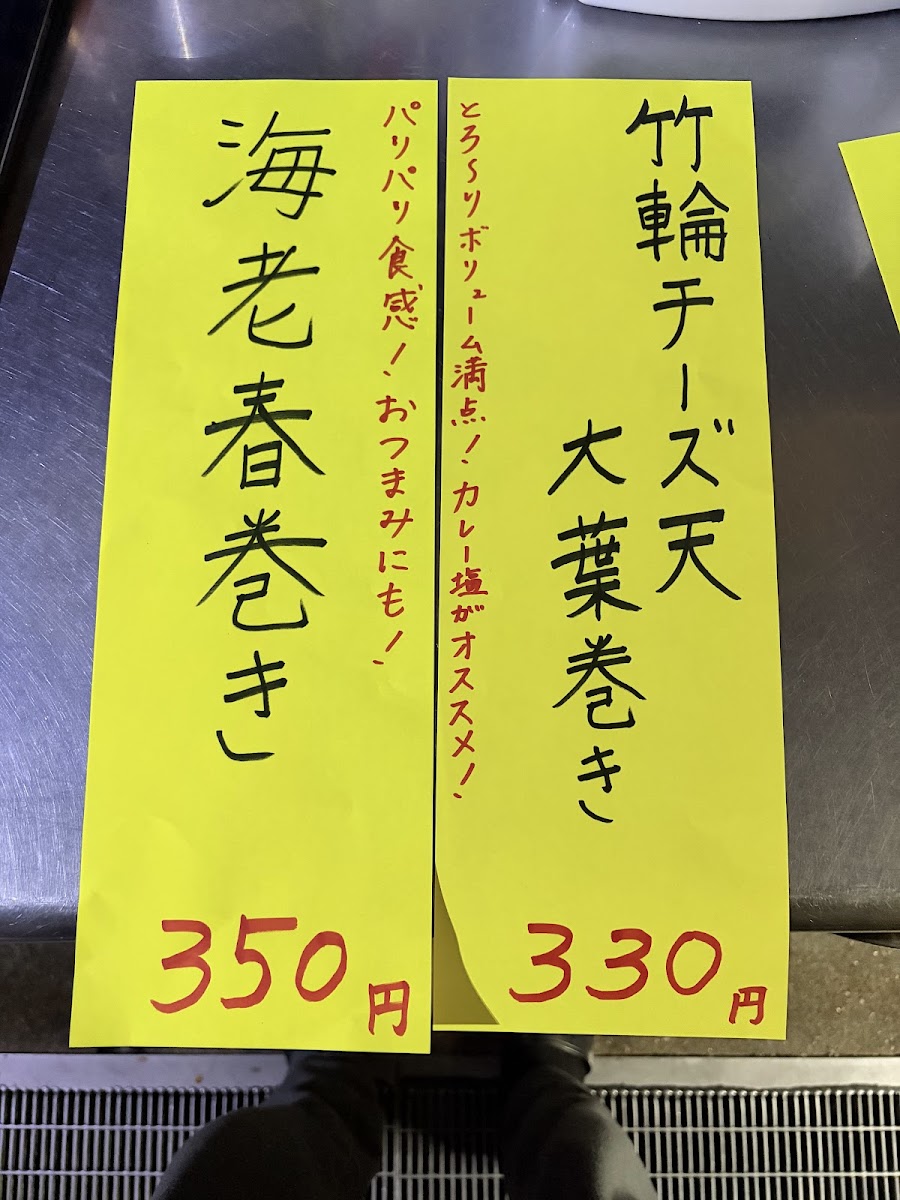 竹輪チーズ天
大葉巻き
とろ～りボリューム満点！カレー塩がオススメ！
330円
パリパリ食感！おつまみにも！
海老春巻き
350円